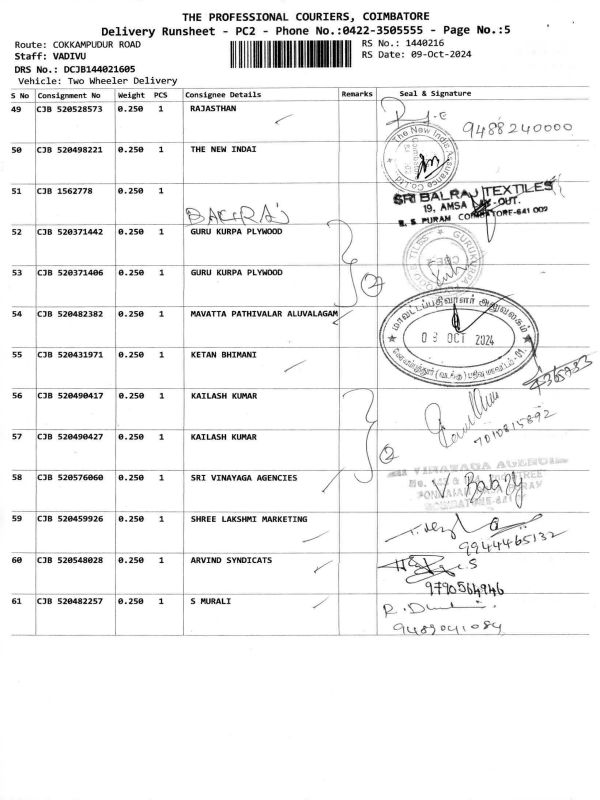 THE PROFESSIONAL COURIERS, COIMBATORE
Delivery Runsheet - PC2 - Phone No.:0422-3505555 - Page No.:5
Route: COKKAMPUDUR ROAD
RS No.: 1440216
Staff: VADIVU
RS Date: 09-Oct-2024
DRS No.: DCJB144021605
Vehicle: Two Wheeler Delivery
S No Consignment No Weight PCS Consignee Details Remarks Seal & Signature
49 CJB 520528573 0.250 1 RAJASTHAN
9488240000
50 CJB 520498221 0.250 1 THE NEW INDAI
The New India Assurance Co. Ltd.
51 CJB 1562778 0.250 1
SRI BALRAJ TEXTILES
19, AMSA LAY-OUT.
R. S. PURAM COIMBATORE-641 002
52 CJB 520371442 0.250 1 GURU KURPA PLYWOOD
2
53 CJB 520371406 0.250 1 GURU KURPA PLYWOOD
54 CJB 520482382 0.250 1 MAVATTA PATHIVALAR ALUVALAGAM
மாவட்டப்பதிவாளர் அலுவலகம்
09 OCT 2024
55 CJB 520431971 0.250 1 KETAN BHIMANI
56 CJB 520490417 0.250 1 KAILASH KUMAR
7010815892
57 CJB 520490427 0.250 1 KAILASH KUMAR
2
58 CJB 520576060 0.250 1 SRI VINAYAGA AGENCIES
VINAYAGA AGENCIES
V. Balaji
59 CJB 520459926 0.250 1 SHREE LAKSHMI MARKETING
9944465132
60 CJB 520548028 0.250 1 ARVIND SYNDICATS
9790564946
61 CJB 520482257 0.250 1 S MURALI
9489041084